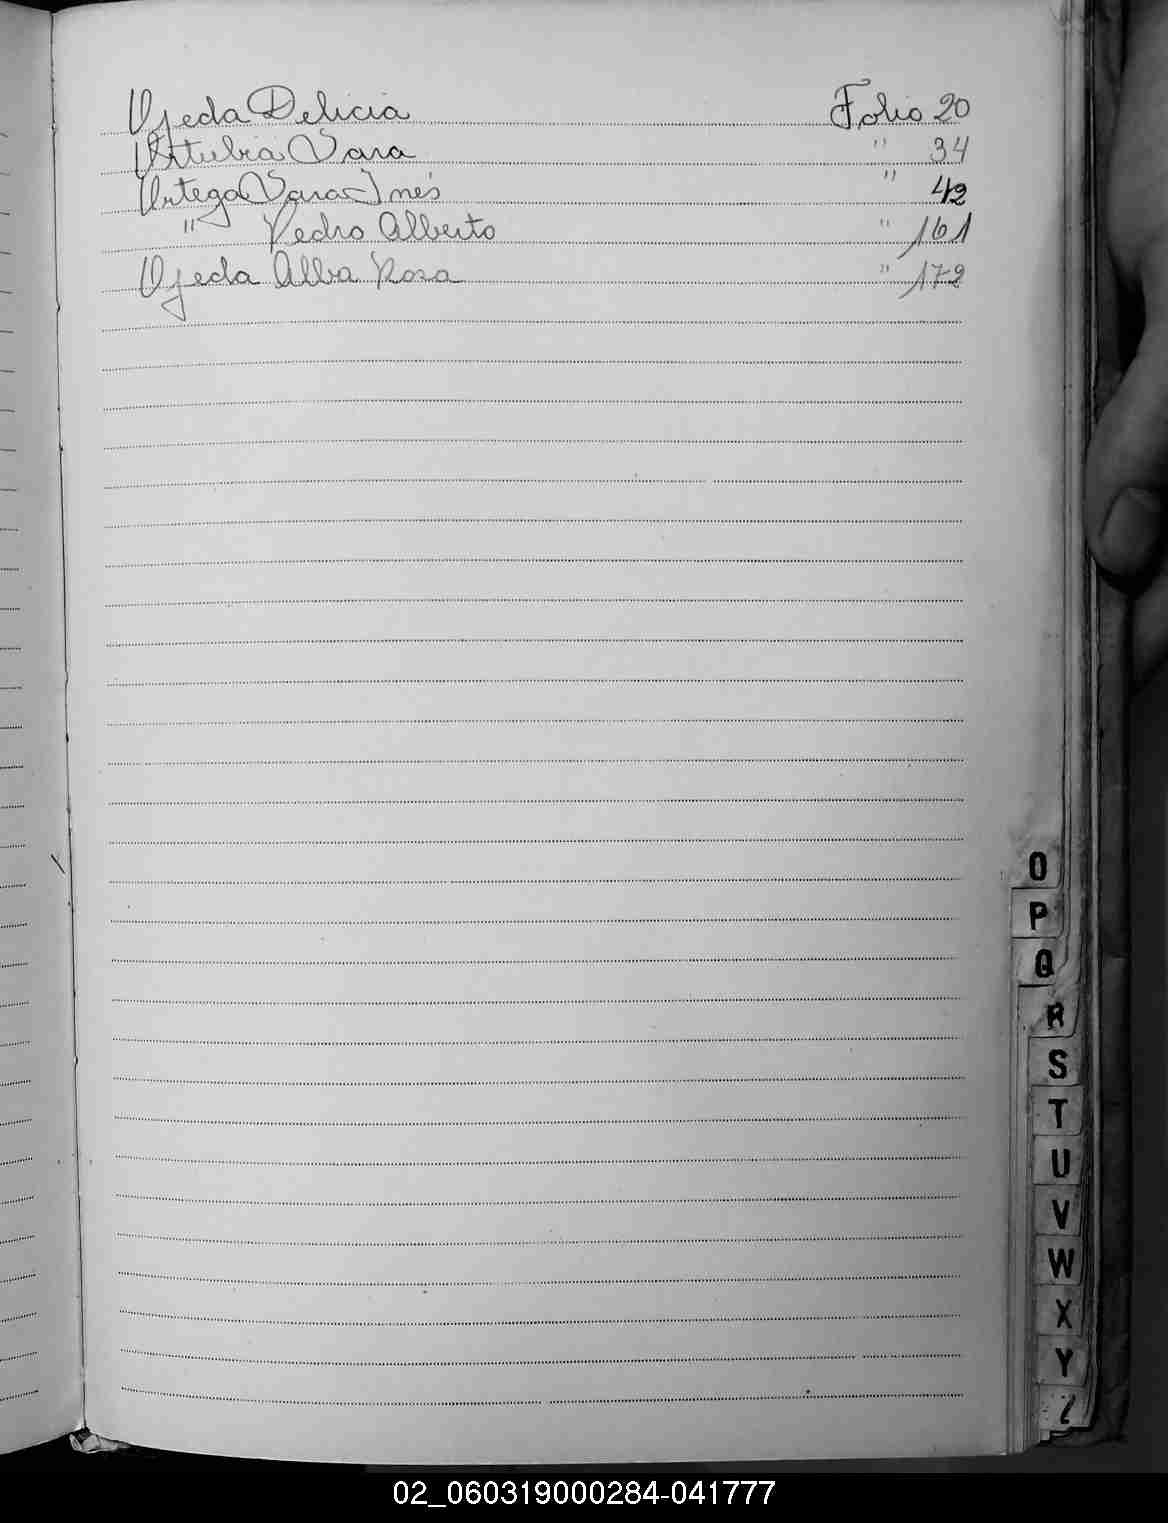 Ojeda Delicia Folio 20
Ortubia Sara " 34
Ortega Sara Inés " 42
" Pedro Alberto " 161
Ojeda Alba Rosa " 172
O
P
Q
R
S
T
U
V
W
X
Y
Z
02_060319000284-041777